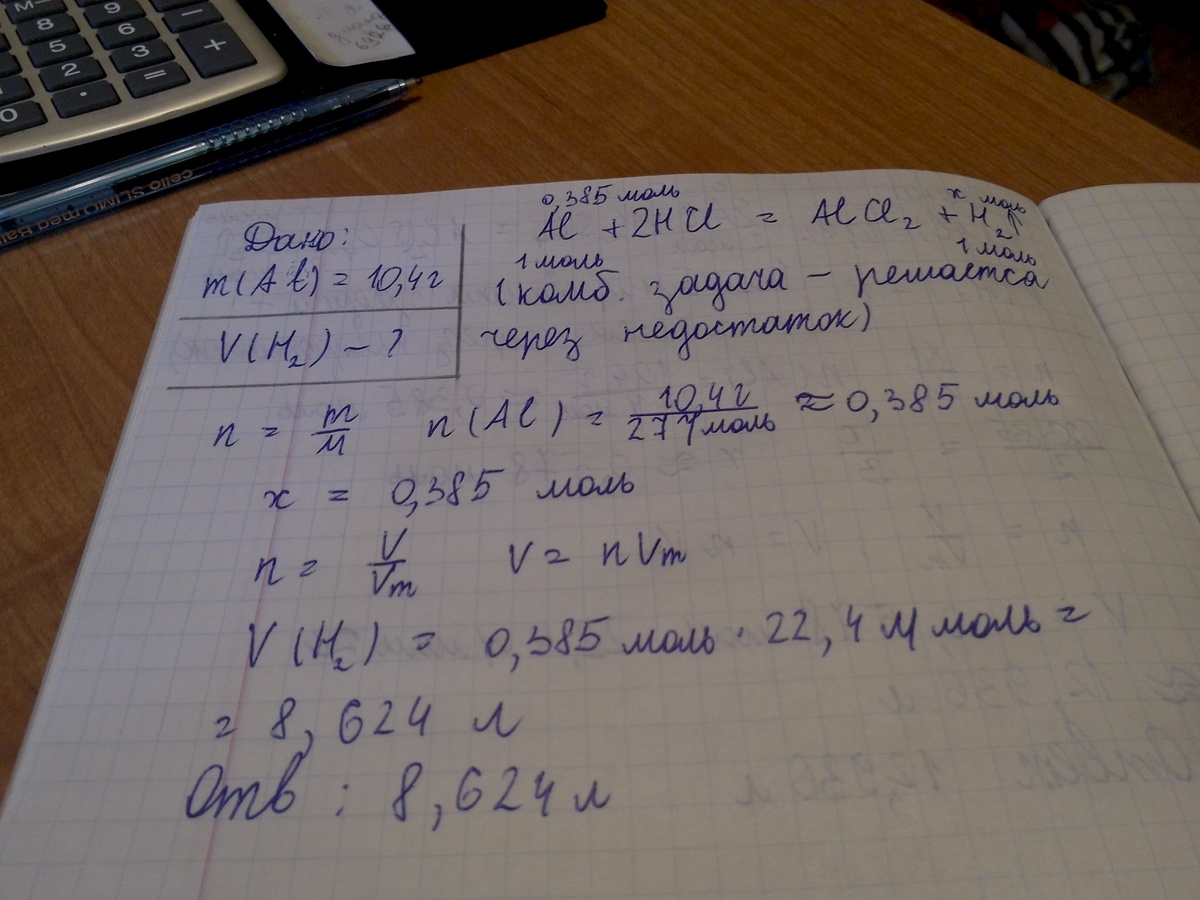 M-
9
-
8
6
+
5
3
2
=
.
0
cello SLIMO
0,385 моль
x моль
Дано:
Al + 2HCl = AlCl₂ + H₂↑
1 моль
1 моль
m(Al) = 10,4г
(комб. задача – решается
через недостаток)
V(H₂) – ?
n = m/M n(Al) = 10,4г/27 г/моль ≈ 0,385 моль
x = 0,385 моль
n = V/Vm V = nVm
V(H₂) = 0,385 моль · 22,4 л/моль =
= 8,624 л
Отв : 8,624 л